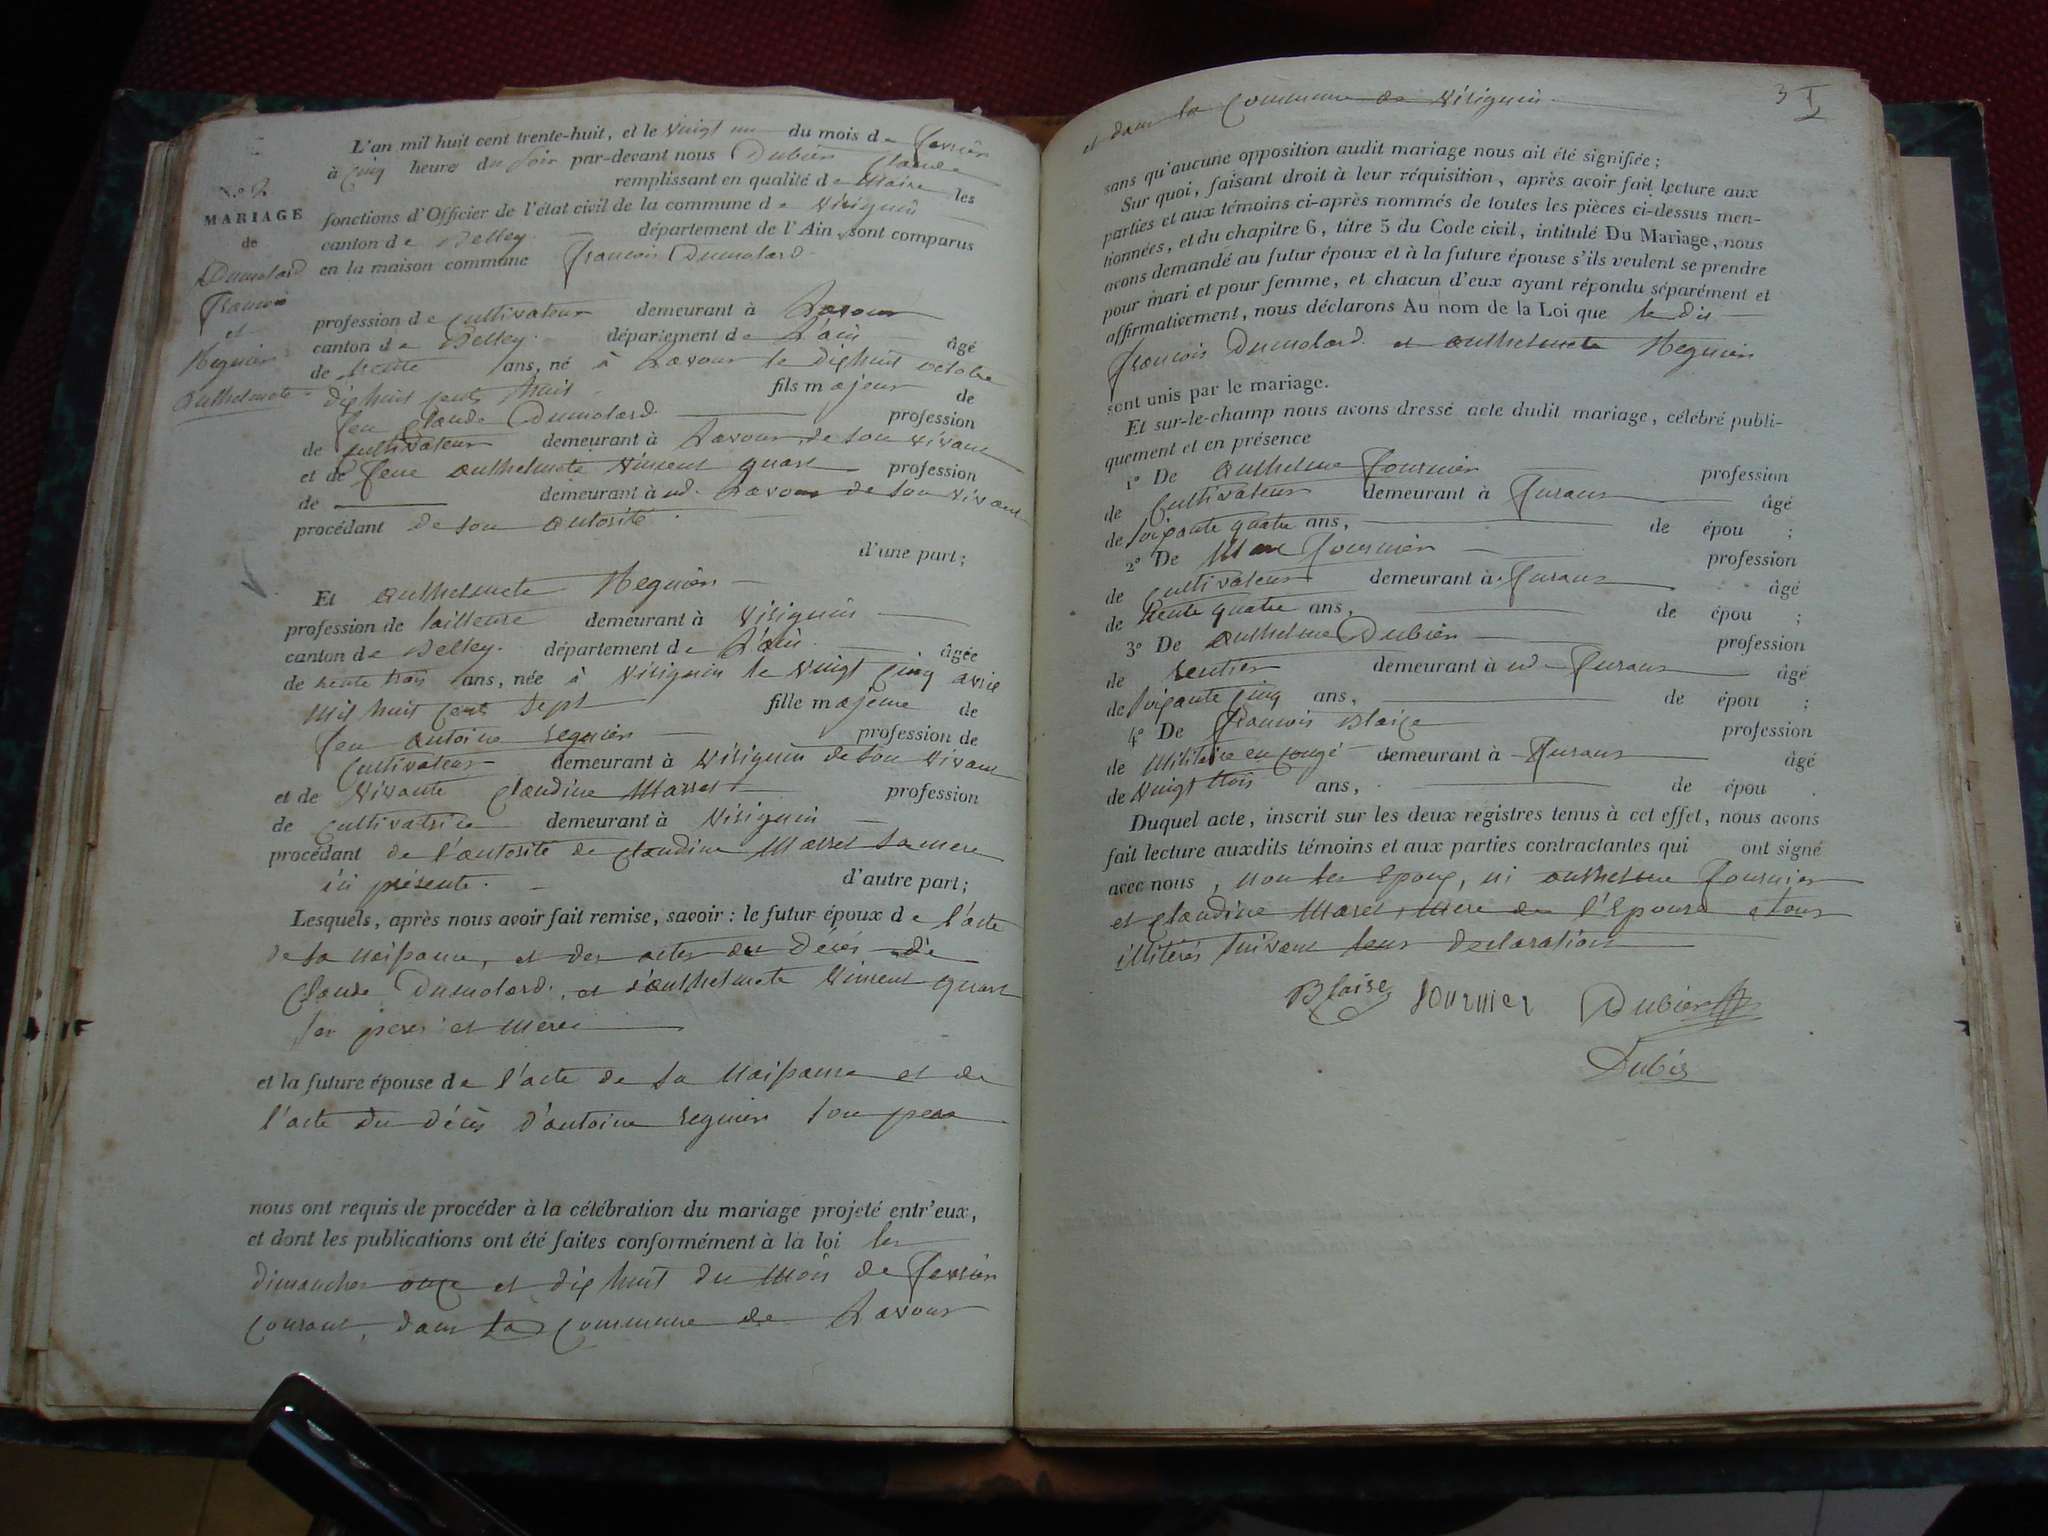 L'an mil huit cent trente-huit, et le vingt un du mois de fevrier
à cinq heure du soir par-devant nous Dubien Claude
remplissant en qualité de Maire les
fonctions d'Officier de l'état civil de la commune de Virignin
canton de Belley département de l'Ain, sont comparus
en la maison commune francois Dumolard
N.o 2
MARIAGE
de
Dumolard
francois
et
Reguin
Anthelmete
profession de cultivateur demeurant à Lavour
canton de Belley département de L'ain âgé
de trente ans, né à Lavour le dixhuit octobre
dixhuit cents huit fils majeur de
feu Claude Dumolard profession
de cultivateur demeurant à Lavour, de son vivant
et de feue anthelmete Vincent quart profession
de demeurant à ud. Lavour de son vivant
procédant de son autorité
d'une part;
Et anthelmete Reguin
profession de tailleuse demeurant à Virignin
canton de Belley département de L'ain âgée
de trente trois ans, née à Virignin le vingt cinq avril
Mil huit cent sept fille majeure de
feu antoine Reguin profession de
cultivateur demeurant à Virignin de son vivant
et de vivante Claudine Marret profession
de cultivatrice demeurant à Virignin
procédant de l'autorité de Claudine Marret sa mere
ici présente. d'autre part;
Lesquels, après nous avoir fait remise, savoir: le futur époux de l'acte
de sa naissance, et des actes de décès de
Claude Dumolard, et d'anthelmete Vincent quart
ses peres et mere
et la future épouse de l'acte de sa naissance et de
l'acte du décès d'antoine Reguin son pere
nous ont requis de procéder à la célébration du mariage projeté entr'eux,
et dont les publications ont été faites conformément à la loi les
dimanches onze et dix huit du mois de fevrier
courant, dans la commune de Lavour
3
et dans la commune de Virignin
sans qu'aucune opposition audit mariage nous ait été signifiée;
Sur quoi, faisant droit à leur réquisition, après avoir fait lecture aux
parties et aux témoins ci-après nommés de toutes les pièces ci-dessus men-
tionnées, et du chapitre 6, titre 5 du Code civil, intitulé Du Mariage, nous
avons demandé au futur époux et à la future épouse s'ils veulent se prendre
pour mari et pour femme, et chacun d'eux ayant répondu séparément et
affirmativement, nous déclarons Au nom de la Loi que le dit
francois Dumolard et anthelmete Reguin
sont unis par le mariage.
Et sur-le-champ nous avons dressé acte dudit mariage, célébré publi-
quement et en présence
1o De anthelme fournier profession
de cultivateur demeurant à furans âgé
de soixante quatre ans, de épou ;
2o De Marc fournier profession
de cultivateur demeurant à furans âgé
de trente quatre ans, de épou ;
3o De anthelme Dubien profession
de rentier demeurant à ud furans âgé
de soixante cinq ans, de épou ;
4o De francois Blaize profession
de Militaire en congé demeurant à furans âgé
de vingt trois ans, de épou .
Duquel acte, inscrit sur les deux registres tenus à cet effet, nous avons
fait lecture auxdits témoins et aux parties contractantes qui ont signé
avec nous, non les epoux, ni anthelme fournier
et Claudine Maret, mere de l'epouse, tous
illitérés suivant leur declaration
Blaise fournier Dubien
Dubien